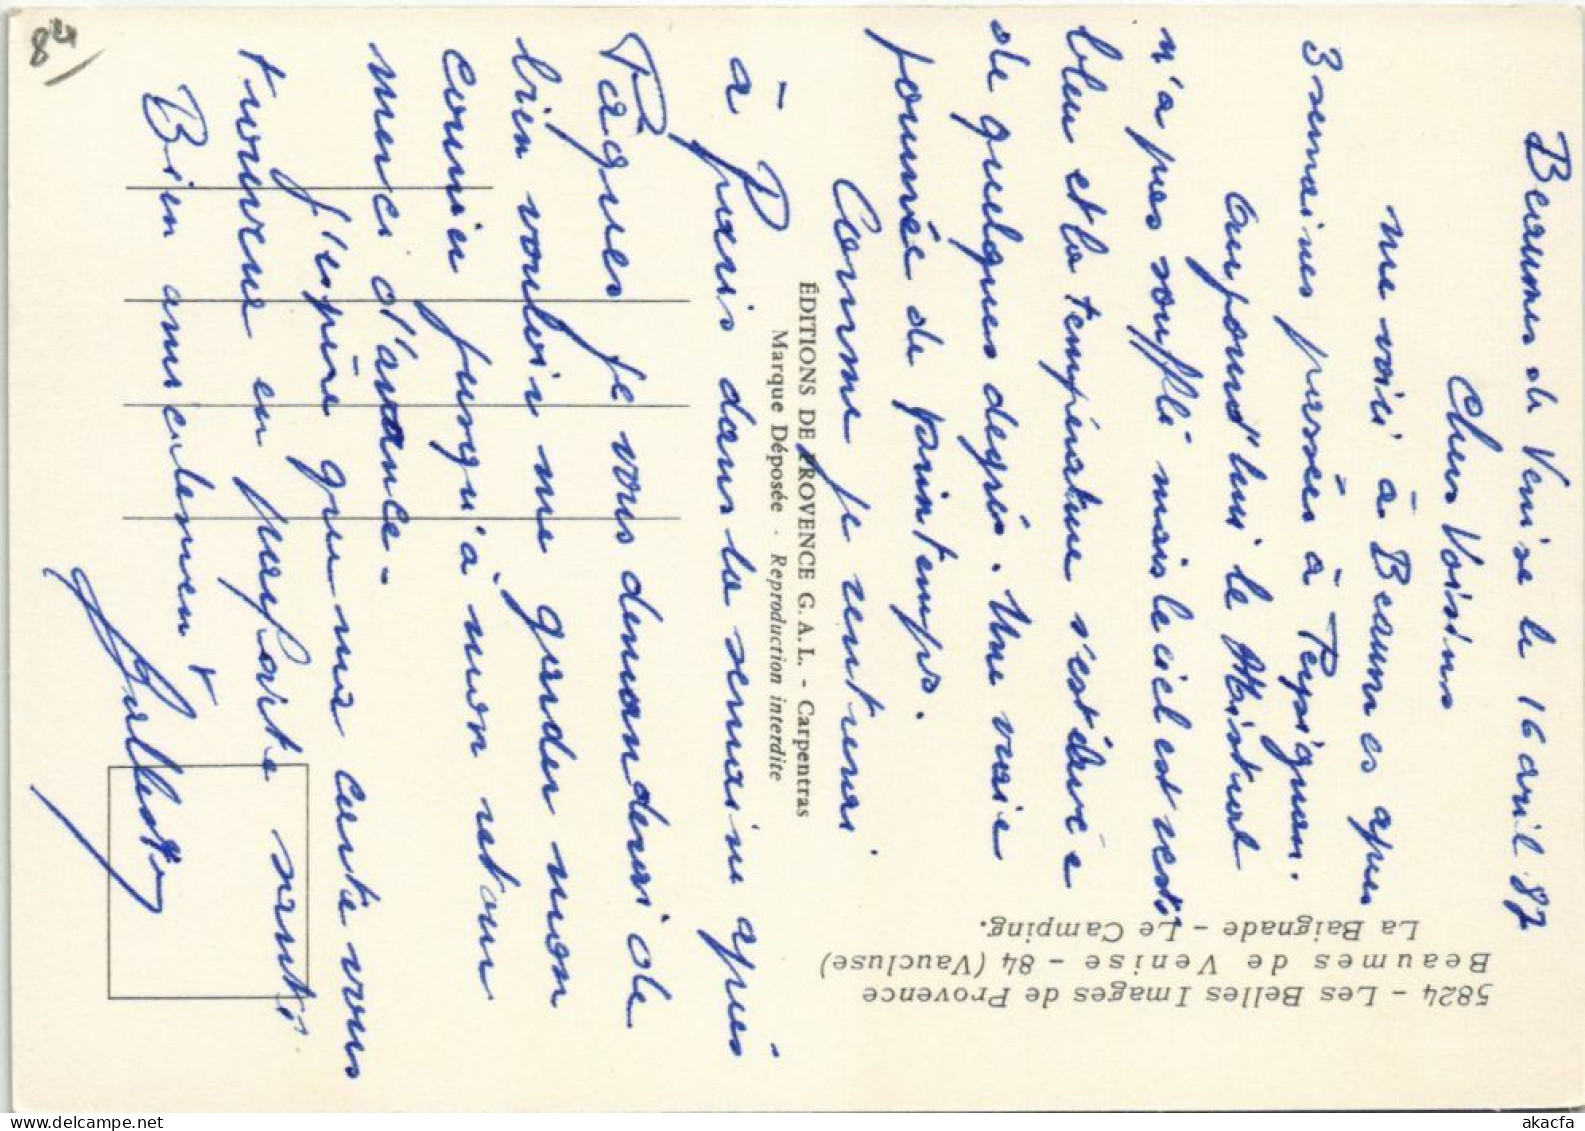 Beaumes de Venise le 16 avril 87
Chers Voisins
me voici à Beaumes après
3 semaines passées à Perpignan.
Aujourd'hui le Mistral
n'a pas soufflé mais le ciel est resté
bleu et la température s'est élevée
de quelques degrés. Une vraie
journée de printemps.
Comme je rentrerai
à Paris dans la semaine après
Pâques je vous demanderai de
bien vouloir me garder mon
courrier jusqu'à mon retour
merci d'avance.
J'espère que ma carte vous
trouvera en parfaite santé
Bien amicalement
ÉDITIONS DE PROVENCE G.A.L. - Carpentras
Marque Déposée - Reproduction interdite
5824 - Les Belles Images de Provence
Beaumes de Venise - 84 (Vaucluse)
La Baignade - Le Camping.
84
www.delcampe.net
akacfa